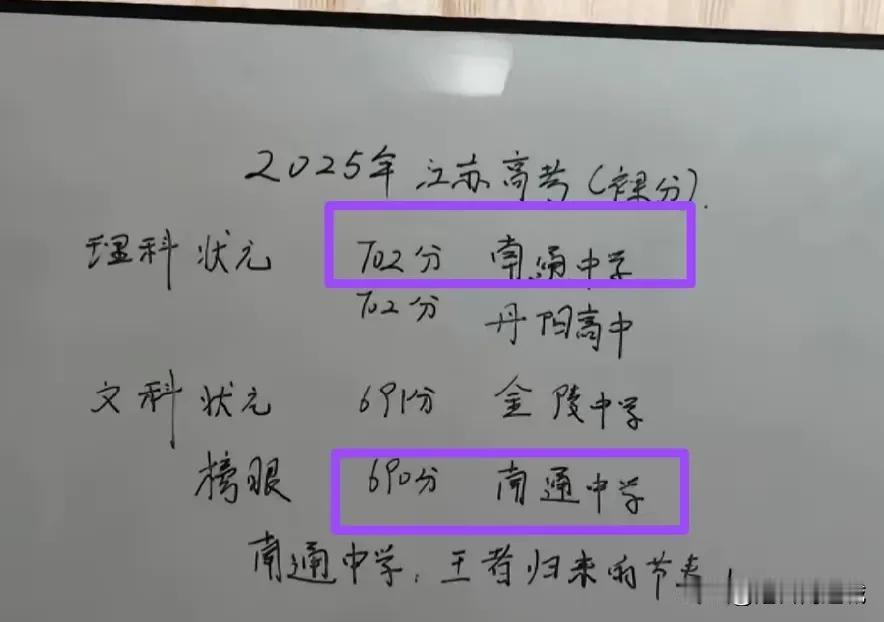 2025年 江苏高考(裸分).
理科状元 702分 南通中学
702分 丹阳高中
文科状元 691分 金陵中学
榜眼 690分 南通中学
南通中学,王者归来的节奏!